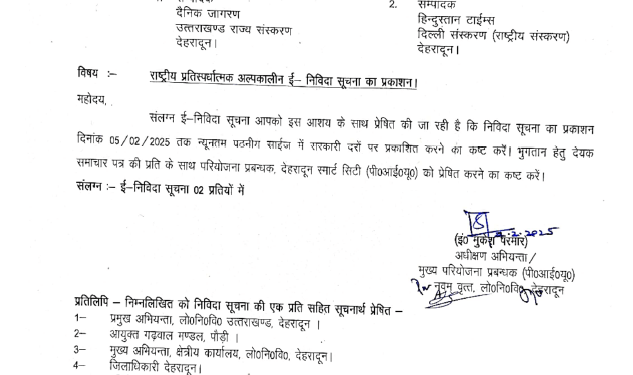 सम्पादक
दैनिक जागरण
उत्तराखण्ड राज्य संस्करण
देहरादून।
2. सम्पादक
हिन्दुस्तान टाईम्स
दिल्ली संस्करण (राष्ट्रीय संस्करण)
देहरादून।
विषय :– राष्ट्रीय प्रतिस्पर्धात्मक अल्पकालीन ई– निविदा सूचना का प्रकाशन।
महोदय,
संलग्न ई–निविदा सूचना आपको इस आशय के साथ प्रेषित की जा रही है कि निविदा सूचना का प्रकाशन
दिनांक 05/02/2025 तक न्यूनतम पठनीग साईज में सरकारी दरों पर प्रकाशित करने का कष्ट करें। भुगतान हेतु देयक
समाचार पत्र की प्रति के साथ परियोजना प्रबन्धक, देहरादून स्मार्ट सिटी (पी०आई०यू०) को प्रेषित करने का कष्ट करें।
संलग्न :– ई–निविदा सूचना 02 प्रतियों में
.2.2025
(इं० मुकेश परमार)
अधीक्षण अभियन्ता/
मुख्य परियोजना प्रबन्धक (पी०आई०यू०)
नवम वृत्त, लो०नि०वि०, देहरादून
प्रतिलिपि – निम्नलिखित को निविदा सूचना की एक प्रति सहित सूचनार्थ प्रेषित –
1– प्रमुख अभियन्ता, लो०नि०वि० उत्तराखण्ड, देहरादून ।
2– आयुक्त गढ़वाल मण्डल, पौड़ी ।
3– मुख्य अभियन्ता, क्षेत्रीय कार्यालय, लो०नि०वि०, देहरादून।
4– जिलाधिकारी देहरादून।